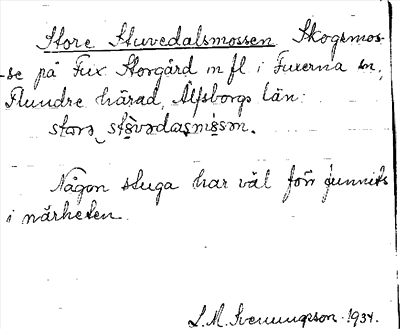 Store Stuvedalsmossen. Skogsmos-
se på Fux Storgård m fl i Fuxerna sn,
Flundre härad, Älfsborgs län.
Någon stuga har väl förr funnits
i närheten.
L.M. Svenungsson. 1934.